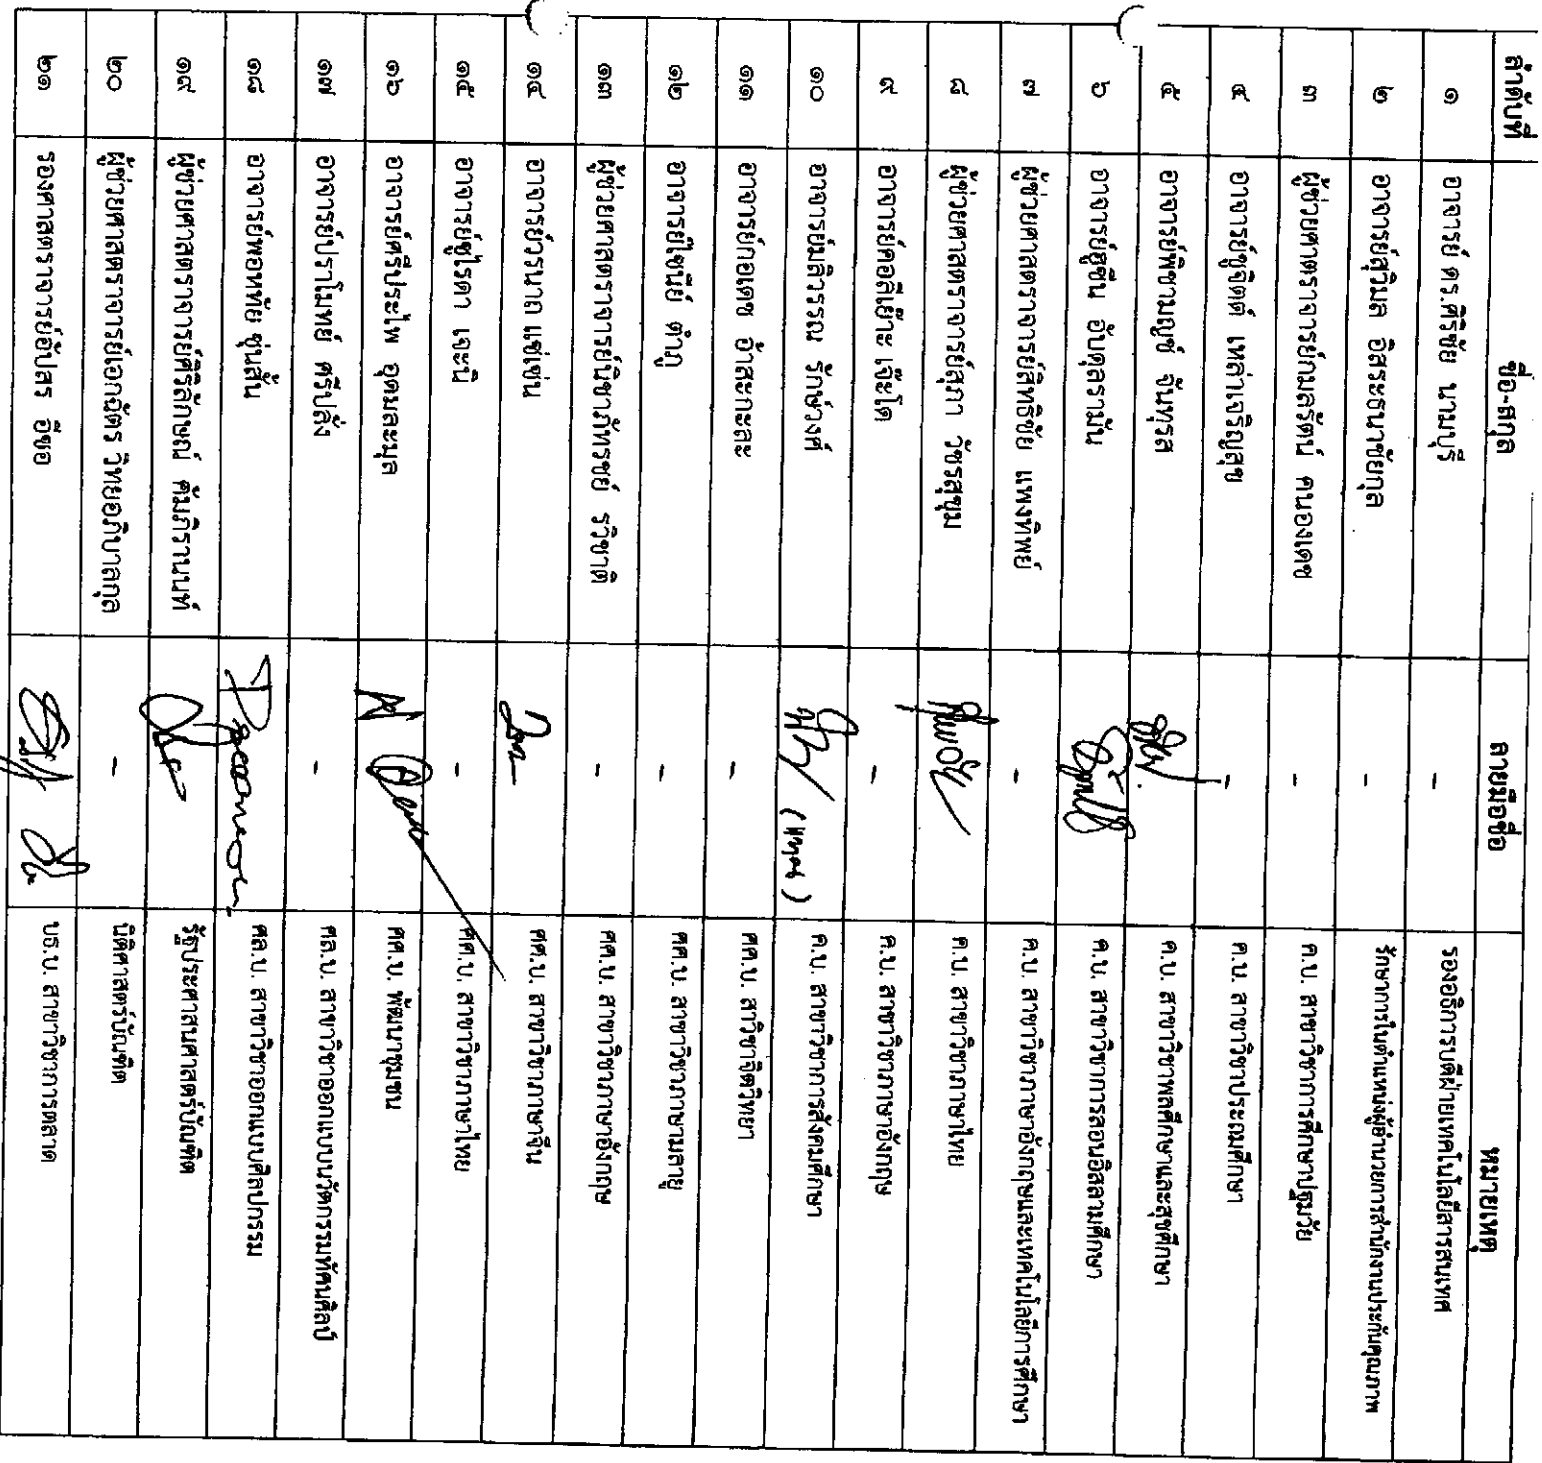 ลำดับที่ ชื่อ-สกุล ลายมือชื่อ หมายเหตุ
๑ อาจารย์ ดร.ศิริชัย นามบุรี - รองอธิการบดีฝ่ายเทคโนโลยีสารสนเทศ
๒ อาจารย์สุวิมล อิสระธนาชัยกุล - รักษาการในตำแหน่งผู้อำนวยการสำนักงานประกันคุณภาพ
๓ ผู้ช่วยศาตราจารย์กมลรัตน์ คนองเดช - ค.บ. สาขาวิชาการศึกษาปฐมวัย
๔ อาจารย์ชูจิตต์ เหล่าเจริญสุข - ค.บ. สาขาวิชาประถมศึกษา
๕ อาจารย์พิชามญชุ์ จันทุรส ค.บ. สาขาวิชาพลศึกษาและสุขศึกษา
๖ อาจารย์ฮูซีน อับดุลรามัน ค.บ. สาขาวิชาการสอนอิสลามศึกษา
๗ ผู้ช่วยศาสตราจารย์สิทธิชัย แพงทิพย์ - ค.บ. สาขาวิชาภาษาอังกฤษและเทคโนโลยีการศึกษา
๘ ผู้ช่วยศาสตราจารย์สุภา วัชรสุขุม ค.บ. สาขาวิชาภาษาไทย
๙ อาจารย์คอลีเย๊าะ เจ๊ะโด - ค.บ. สาขาวิชาภาษาอังกฤษ
๑๐ อาจารย์มลิวรรณ รักษ์วงศ์ (แทน) ค.บ. สาขาวิชาการสังคมศึกษา
๑๑ อาจารย์กอเดช อ้าสะกะละ - ศศ.บ. สาวิชาจิตวิทยา
๑๒ อาจารย์ไซนีย์ ตำภู - ศศ.บ. สาขาวิชาภาษามลายู
๑๓ ผู้ช่วยศาสตราจารย์นิชาภัทรชย์ รวิชาติ - ศศ.บ. สาขาวิชาภาษาอังกฤษ
๑๔ อาจารย์วรนาถ แซ่เซ่น ศศ.บ. สาขาวิชาภาษาจีน
๑๕ อาจารย์ซูไรดา เจะนิ - ศศ.บ. สาขาวิชาภาษาไทย
๑๖ อาจารย์ศรีประไพ อุดมละมุล ศศ.บ. พัฒนาชุมชน
๑๗ อาจารย์ปราโมทย์ ศรีปลั่ง - ศล.บ. สาขาวิชาออกแบบนวัตกรรมทัศนศิลป์
๑๘ อาจารย์พอหทัย ซุ่นสั้น ศล.บ. สาขาวิชาออกแบบศิลปกรรม
๑๙ ผู้ช่วยศาสตราจารย์ศิริลักษณ์ คัมภิรานนท์ รัฐประศาสนศาสตร์บัณฑิต
๒๐ ผู้ช่วยศาสตราจารย์เอกฉัตร วิทยอภิบาลกุล - นิติศาสตร์บัณฑิต
๒๑ รองศาสตราจารย์อัปสร อีซอ บธ.บ. สาขาวิชาการตลาด